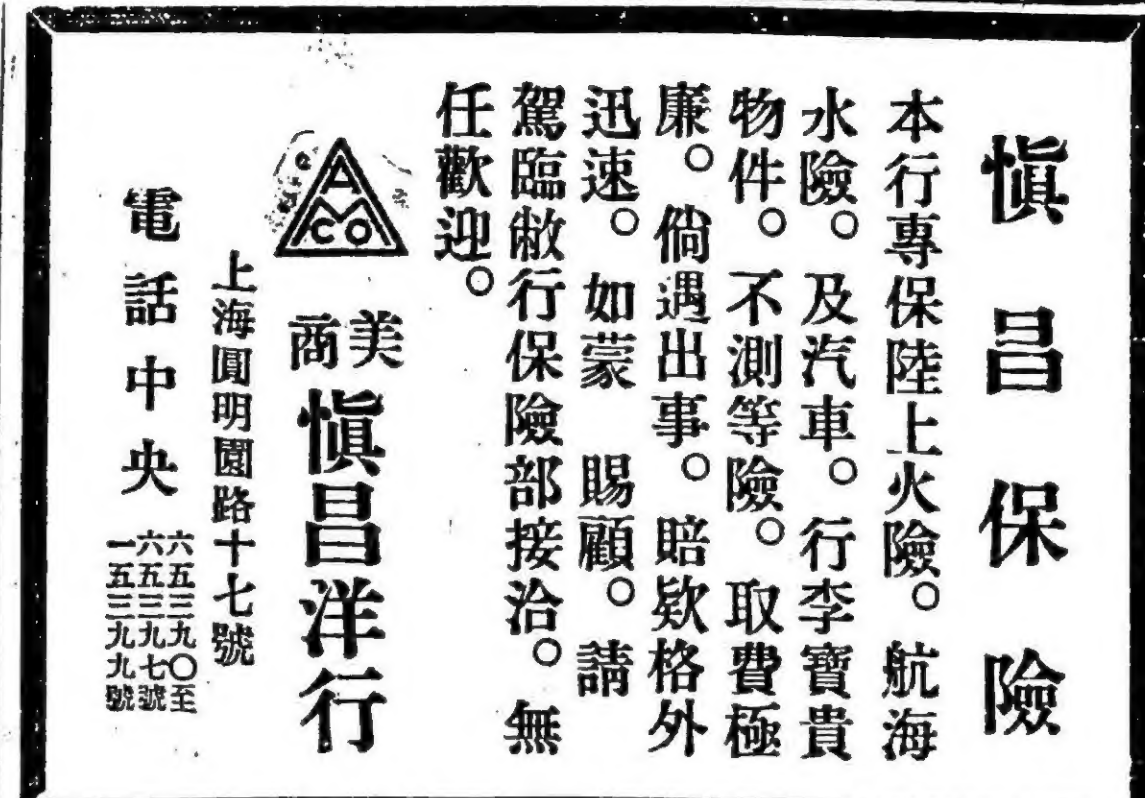 慎昌保險
本行專保陸上火險。航海
水險。及汽車。行李寶貴
物件。不測等險。取費極
廉。倘遇出事。賠欵格外
迅速。如蒙 賜顧。請
駕臨敝行保險部接洽。無
任歡迎。
AMCO
美商
慎昌洋行
上海圓明園路十七號
電話中央
六五三九〇至
六五三九七號
一五三九九號